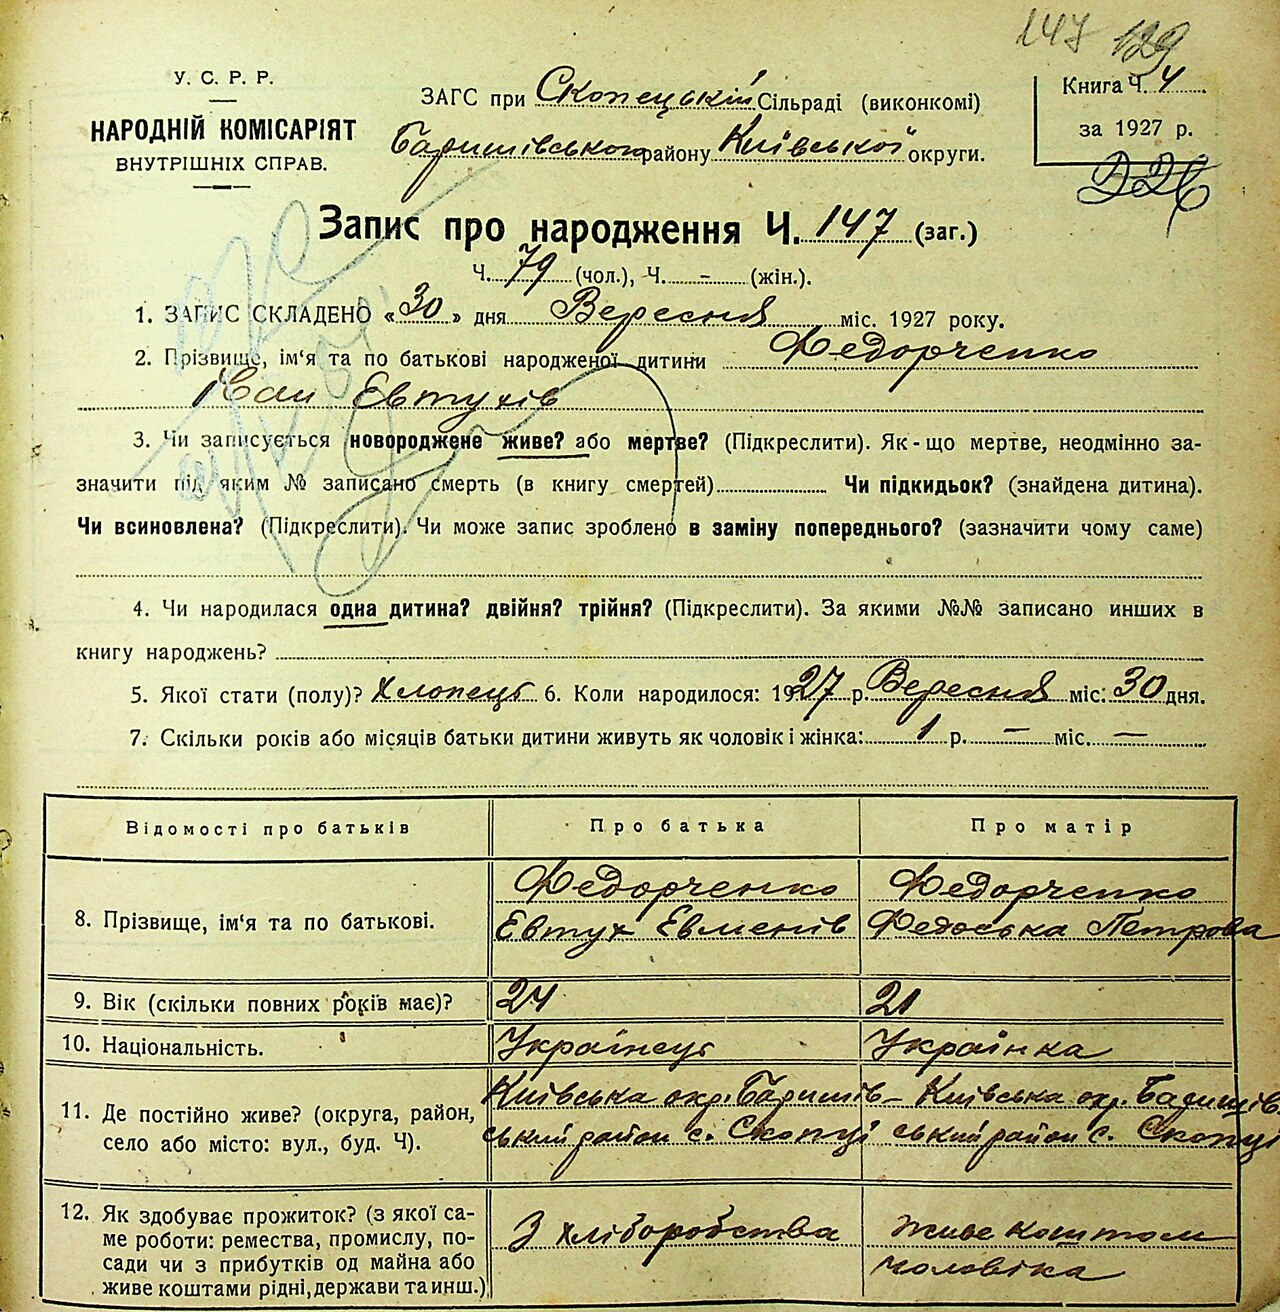 147 129
У. С. Р. Р.
НАРОДНІЙ КОМІСАРІЯТ
ВНУТРІШНІХ СПРАВ.
ЗАГС при Скопецькій Сільраді (виконкомі)
Баришівського району Київської округи.
Книга Ч. 4
за 1927 р.
226
Запис про народження Ч. 147 (заг.)
Ч. 79 (чол.), Ч. - (жін.).
1. ЗАПИС СКЛАДЕНО «30» дня Вересня міс. 1927 року.
2. Прізвище, ім'я та по батькові народженої дитини Федорченко
Іван Евтухів
3. Чи записується новороджене живе? або мертве? (Підкреслити). Як-що мертве, неодмінно за-
значити під яким № записано смерть (в книгу смертей) Чи підкидьок? (знайдена дитина).
Чи всиновлена? (Підкреслити). Чи може запис зроблено в заміну попереднього? (зазначити чому саме)
4. Чи народилася одна дитина? двійня? трійня? (Підкреслити). За якими №№ записано инших в
книгу народжень?
5. Якої стати (полу)? Хлопець 6. Коли народилося: 1927 р. Вересня міс. 30 дня.
7. Скільки років або місяців батьки дитини живуть як чоловік і жінка: 1 р. — міс. —
Відомості про батьків Про батька Про матір
8. Прізвище, ім'я та по батькові.
Федорченко
Евтух Евменів
Федорченко
Федоська Петрова
9. Вік (скільки повних років має)? 24 21
10. Національність. Українець Українка
11. Де постійно живе? (округа, район,
село або місто: вул., буд. Ч).
Київська окр. Баришів-
ський район с. Скопці
Київська окр. Баришів
ський район с. Скопці
12. Як здобуває прожиток? (з якої са-
ме роботи: ремества, промислу, по-
сади чи з прибутків од майна або
живе коштами рідні, держави та инш.)
З хліборобства
Живе коштом
чоловіка